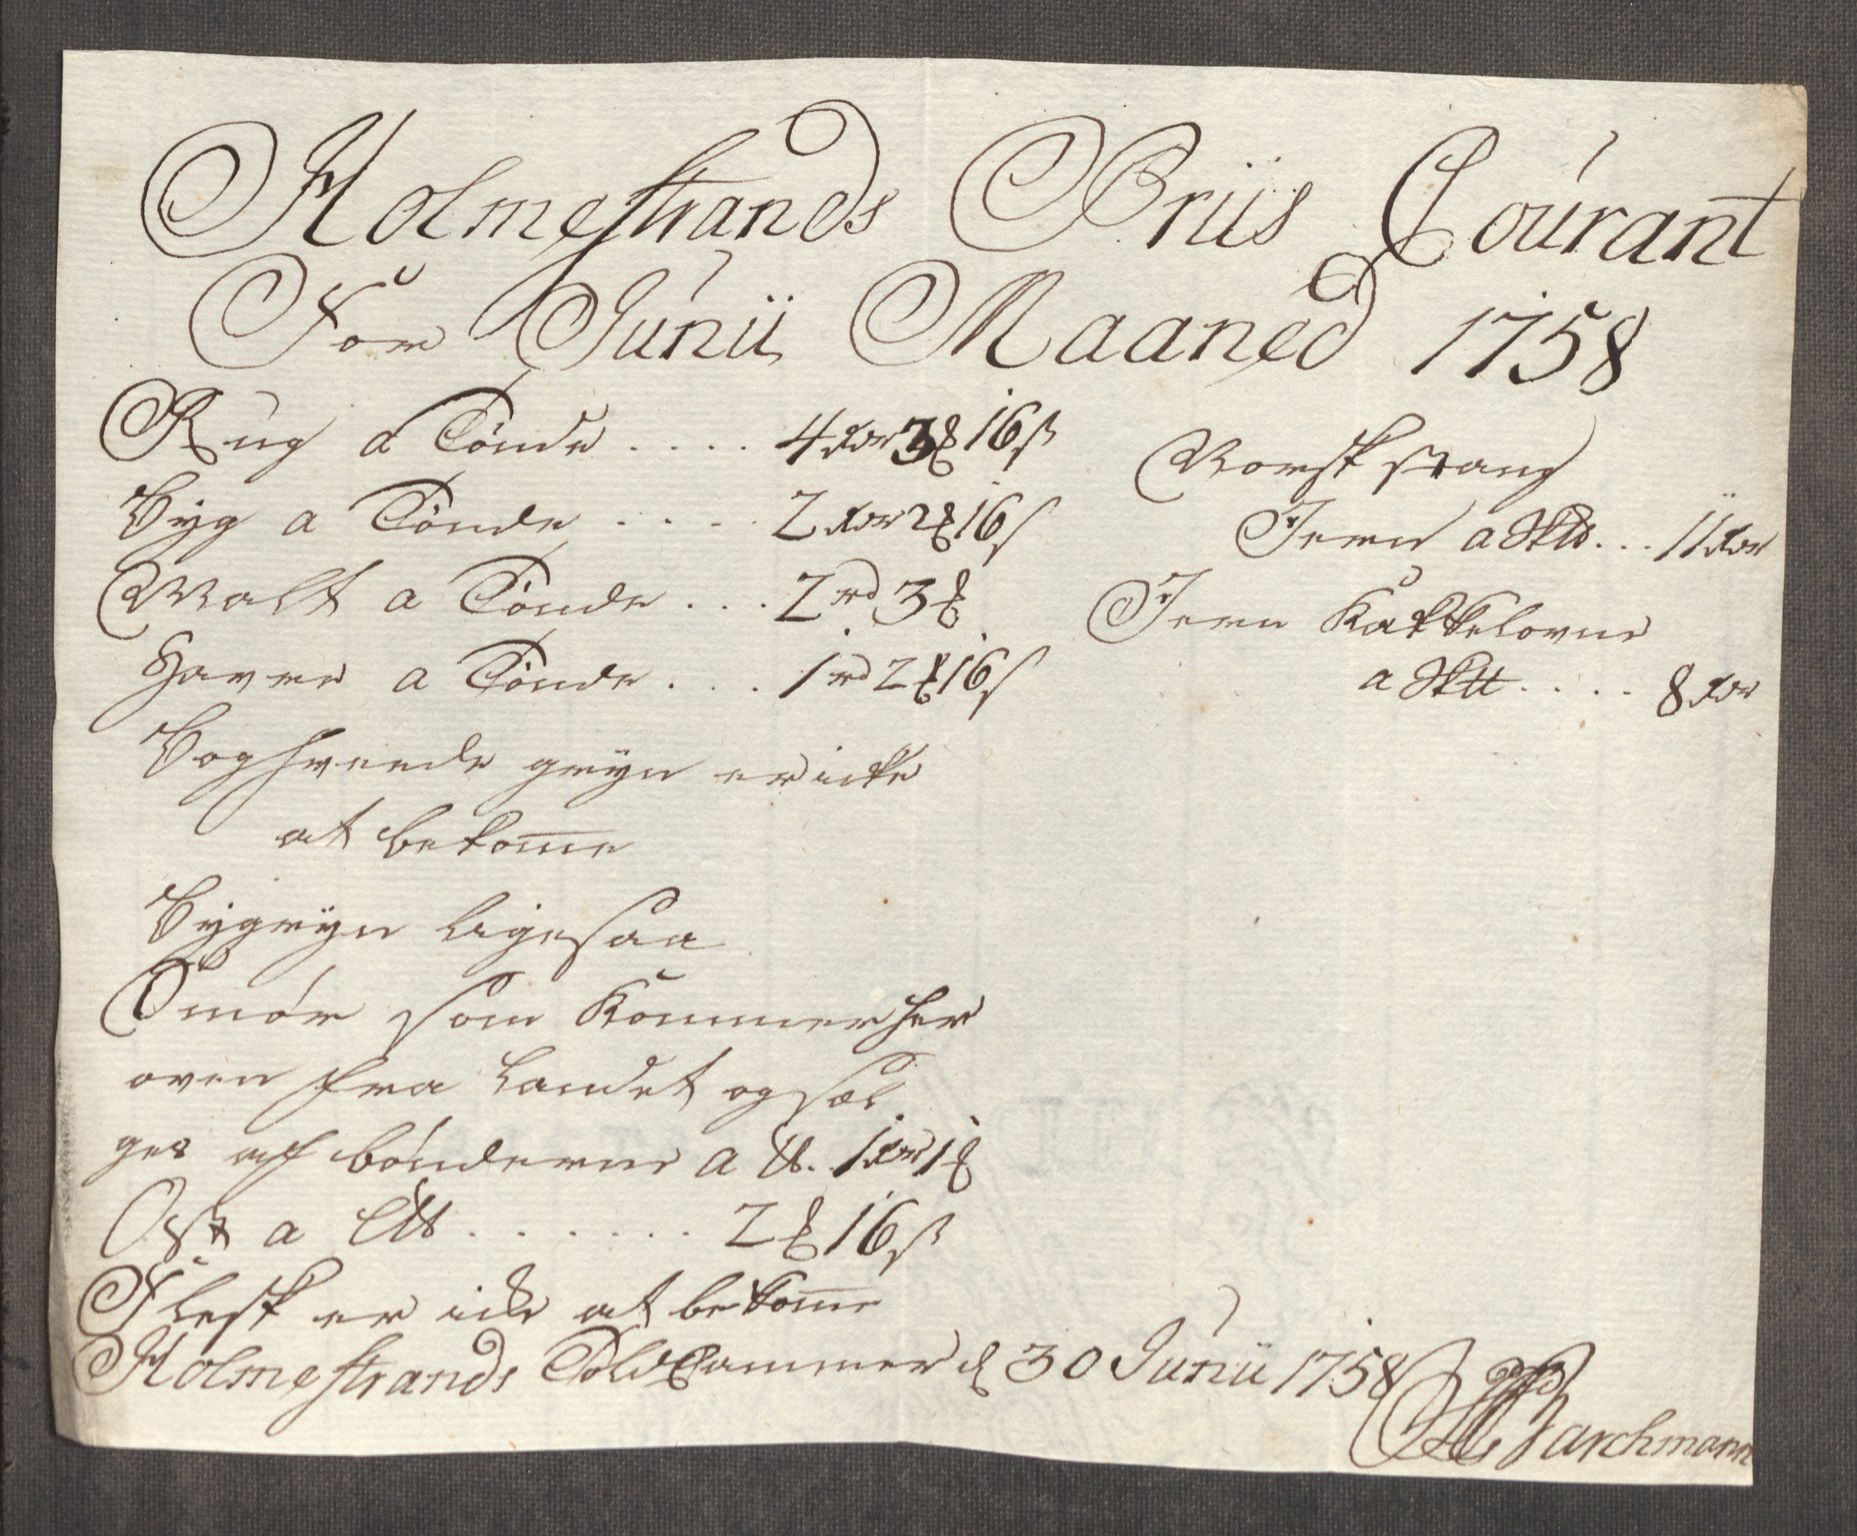 Holmestrands Priis Courant
For Junii Maaned 1758
Rug a Tønde .... 4 Rdr 3 ß 16 s
Byg a Tønde .... 2 Rdr 2 ß 16 s
Malt a Tønde ... 2 rd 3 ß
Havre a Tønde ... 1 rd 2 ß 16 s
Boghveede gryn er icke
at bekome
Bygryn ligesaa
Smør som Kommer her
oven fra Landet og sæl
ges af bønderne a 1 Rdr 1
Ost a ....... 2 16 s
Flesk er icke at bekome
Norsk stang
Jern a Skt ... 11 Rdr
Jern Kakkelovne
a Skt .... 8 Rdr
Holmestrands Told Cammer d 30 Junii 1758
Barchmann